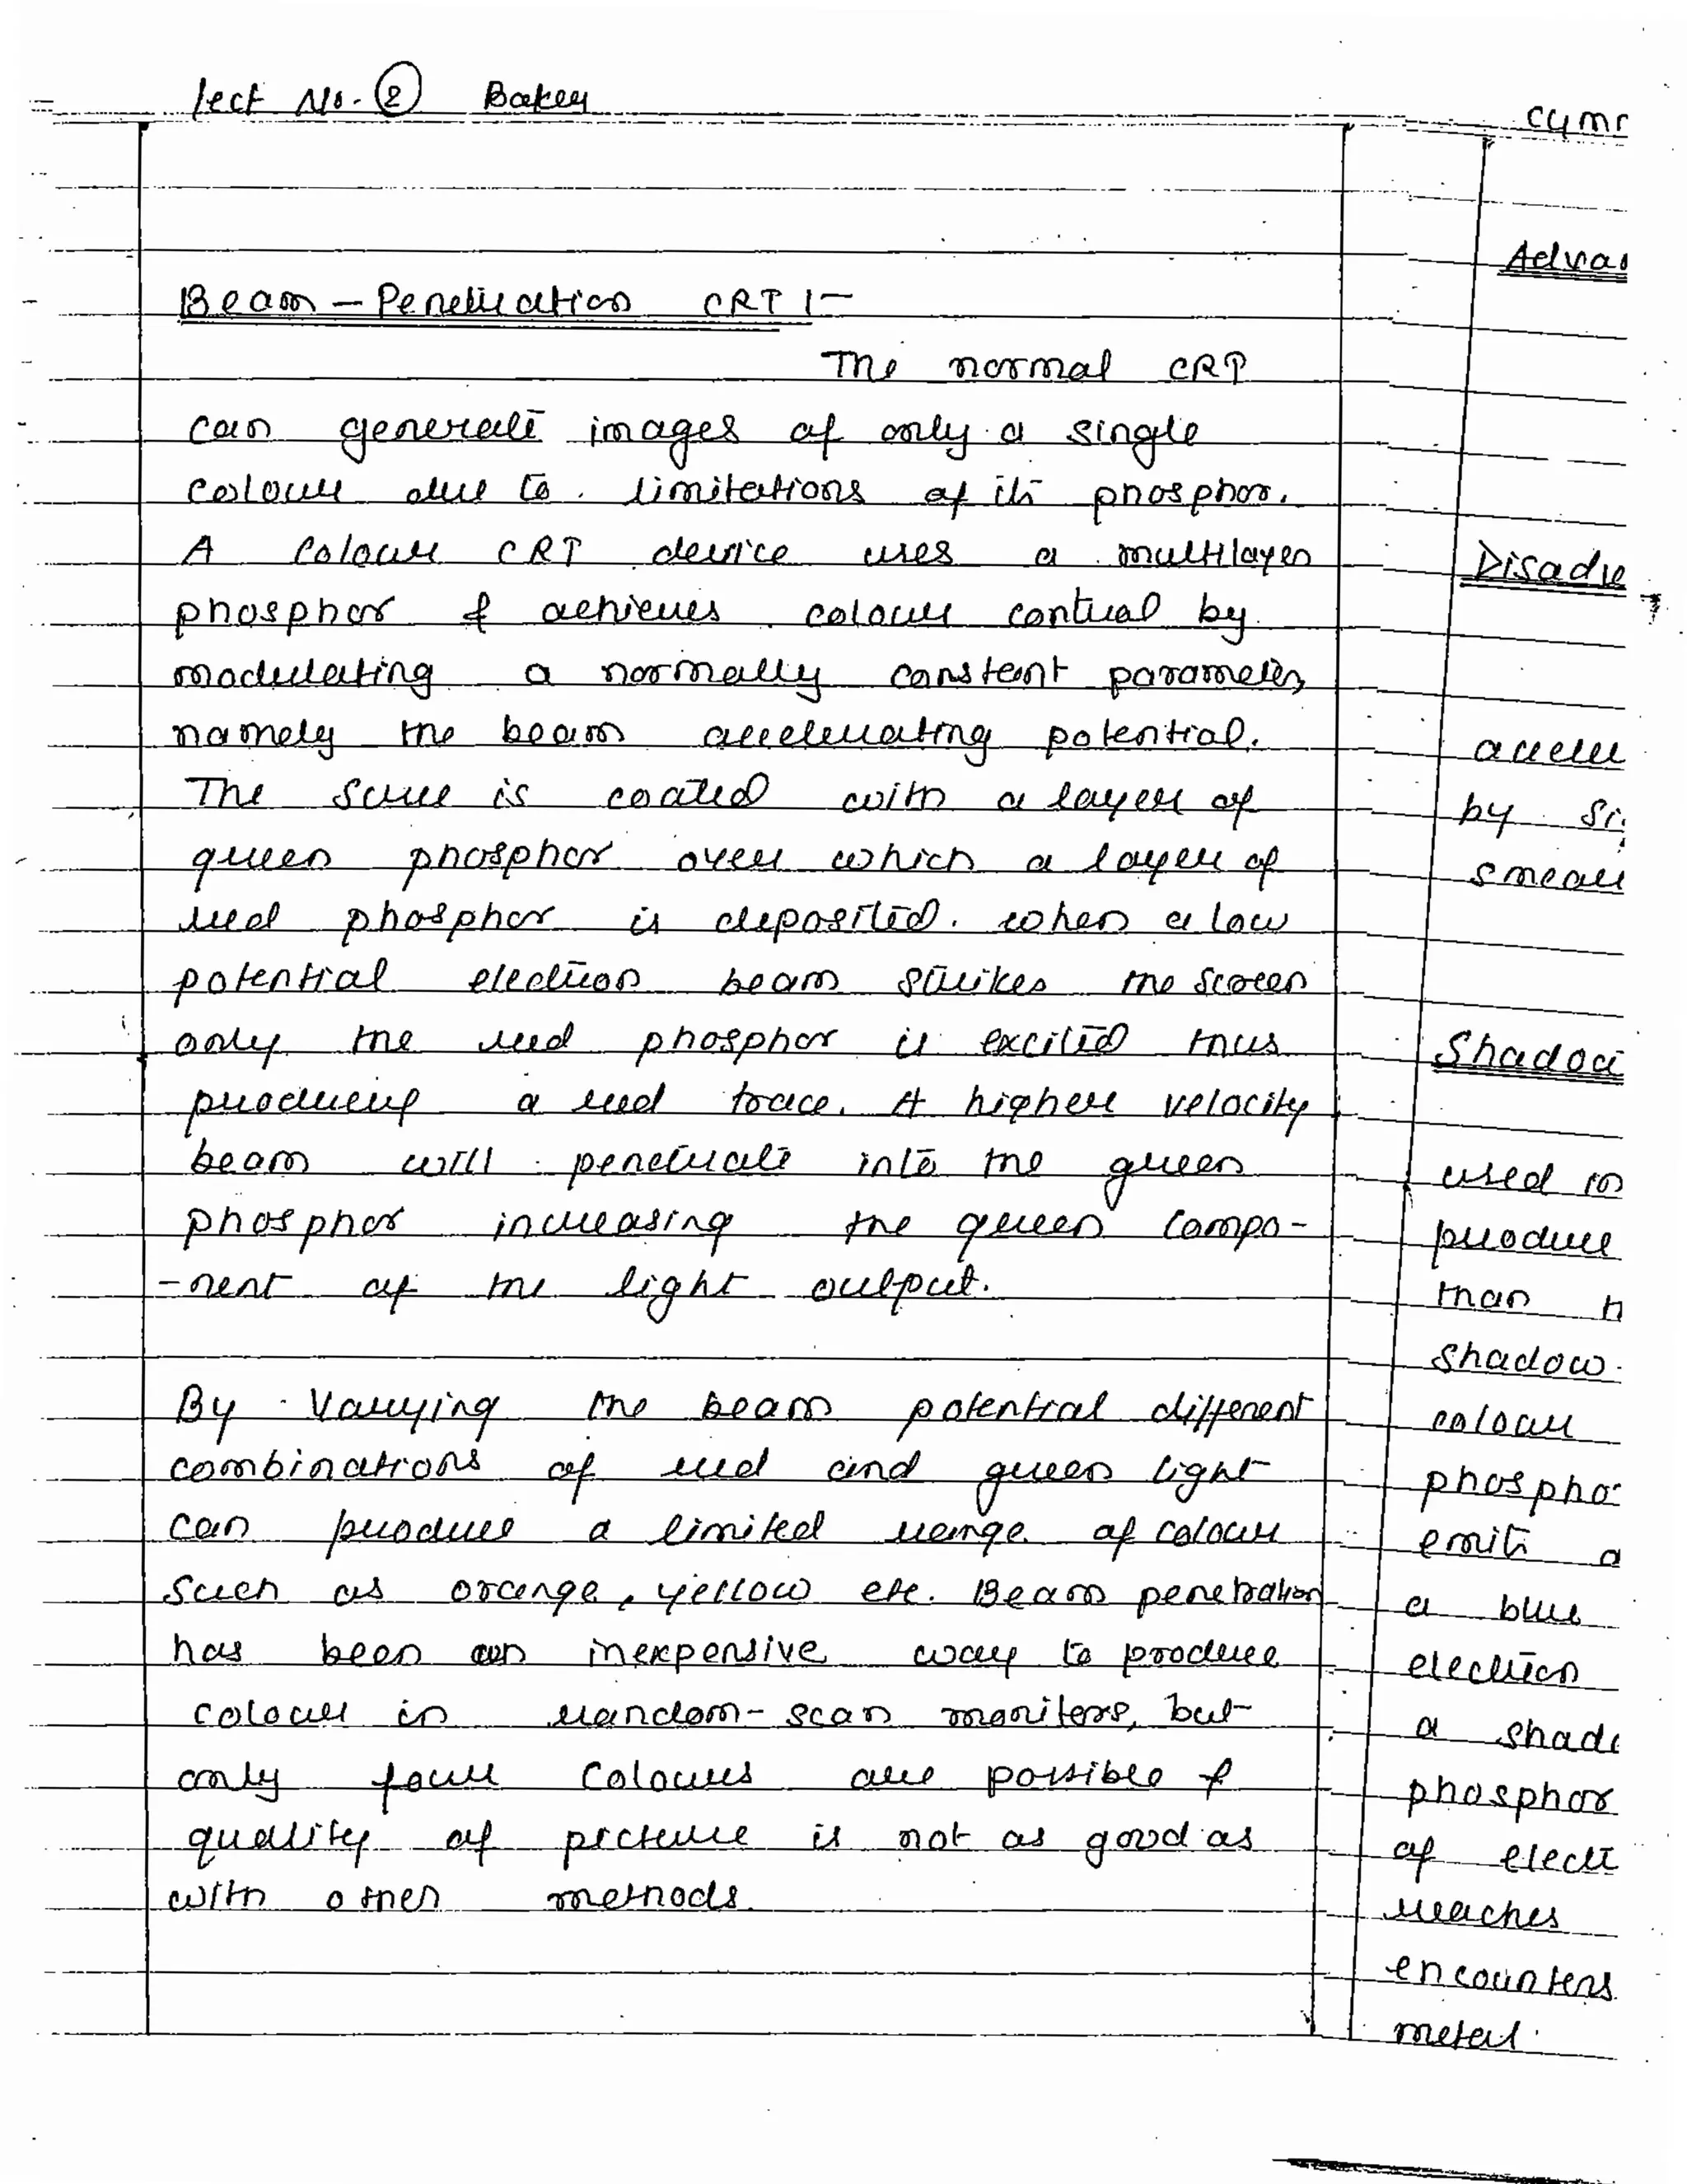 Lect No. 2 Baker
Beam - Penetration CRT :-
The normal CRT
can generate images of only a single
colour due to limitations of its phosphor.
A colour CRT device uses a multilayer
phosphor & achieves colour control by
modulating a normally constant parameter,
namely the beam accelerating potential.
The screen is coated with a layer of
green phosphor over which a layer of
red phosphor is deposited. when a low
potential electron beam strikes the screen
only the red phosphor is excited thus
producing a red trace. A higher velocity
beam will penetrate into the green
phosphor increasing the green compo-
-nent of the light output.
By varying the beam potential different
combinations of red and green light
can produce a limited range of colour
such as orange, yellow etc. Beam penetration
has been an inexpensive way to produce
colour in random-scan monitors, but
only four colours are possible &
quality of picture is not as good as
with other methods.
Advan
Disadv
accele
by Si
smear
Shadow
used in
produce
than h
shadow
colour
phosphor
emits a
a blue
electron
a shado
phosphor
of electr
reaches
encounters
metal